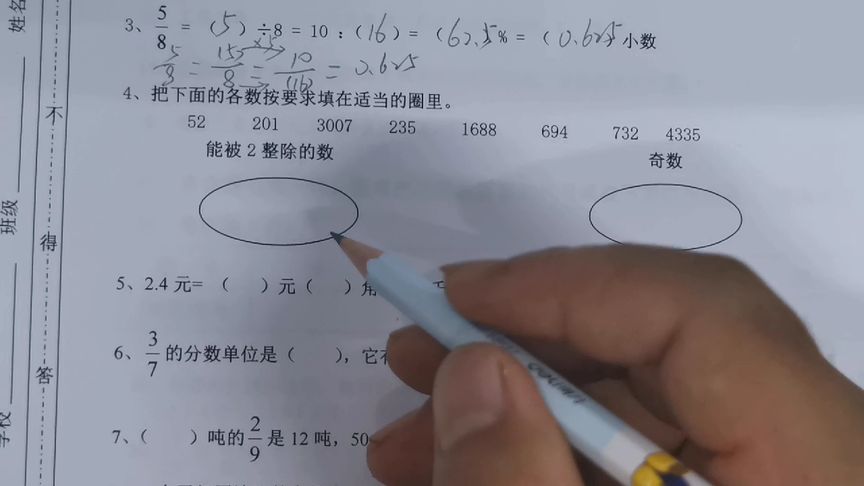 3、5/8 = (5)÷8 = 10：(16) = (62.5% = (0.625小数
5/8 = 15/8 = 10/(16) = 0.625
×5
4、把下面的各数按要求填在适当的圈里。
52 201 3007 235 1688 694 732 4335
能被2整除的数 奇数
5、2.4元=（ ）元（ ）角
6、3/7的分数单位是（ ），它
7、（ ）吨的2/9是12吨，50
姓名
班级
学校
不
得
答